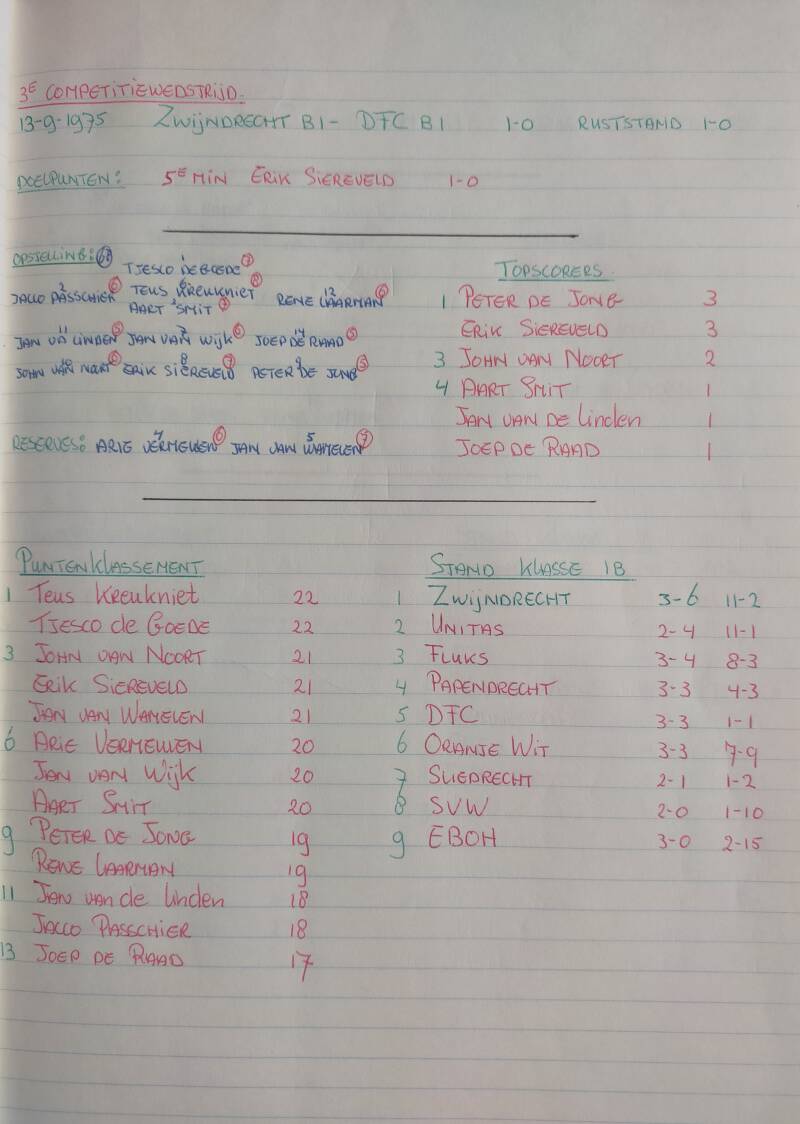 3E COMPETITIEWEDSTRIJD.
13-9-1975 ZWIJNDRECHT B1 - DFC B1 1-0 RUSTSTAND 1-0
DOELPUNTEN: 5E MIN ERIK SIEREVELD 1-0
OPSTELLING:
TJESCO DE GOEDE 1 7
JACCO PASSCHIER 2 6 TEUS KREUKNIET 8 RENE LAARMAN 12 6
AART SMIT 7
JAN VD LINDEN 11 5 JAN VAN WIJK 6 JOEP DE RAAD 14 5
JOHN VAN NOORT 10 6 ERIK SIEREVELD 8 7 PETER DE JONG 9 5
RESERVES: ARIE VERMEULEN 4 6 JAN VAN WAMELEN 5 7
TOPSCORERS
1 PETER DE JONG 3
ERIK SIEREVELD 3
3 JOHN VAN NOORT 2
4 AART SMIT 1
JAN VAN DE LINDEN 1
JOEP DE RAAD 1
PUNTENKLASSEMENT
1 TEUS KREUKNIET 22
TJESCO de GOEDE 22
3 JOHN VAN NOORT 21
ERIK SIEREVELD 21
JAN VAN WAMELEN 21
6 ARIE VERMEULEN 20
JAN VAN WIJK 20
AART SMIT 20
9 PETER DE JONG 19
RENE LAARMAN 19
11 JAN VAN de LINDEN 18
JACCO PASSCHIER 18
13 JOEP DE RAAD 17
STAND KLASSE 1B
1 ZWIJNDRECHT 3-6 11-2
2 UNITAS 2-4 11-1
3 FLUKS 3-4 8-3
4 PAPENDRECHT 3-3 4-3
5 DFC 3-3 1-1
6 ORANJE WIT 3-3 7-9
7 SLIEDRECHT 2-1 1-2
8 SVW 2-0 1-10
9 EBOH 3-0 2-15